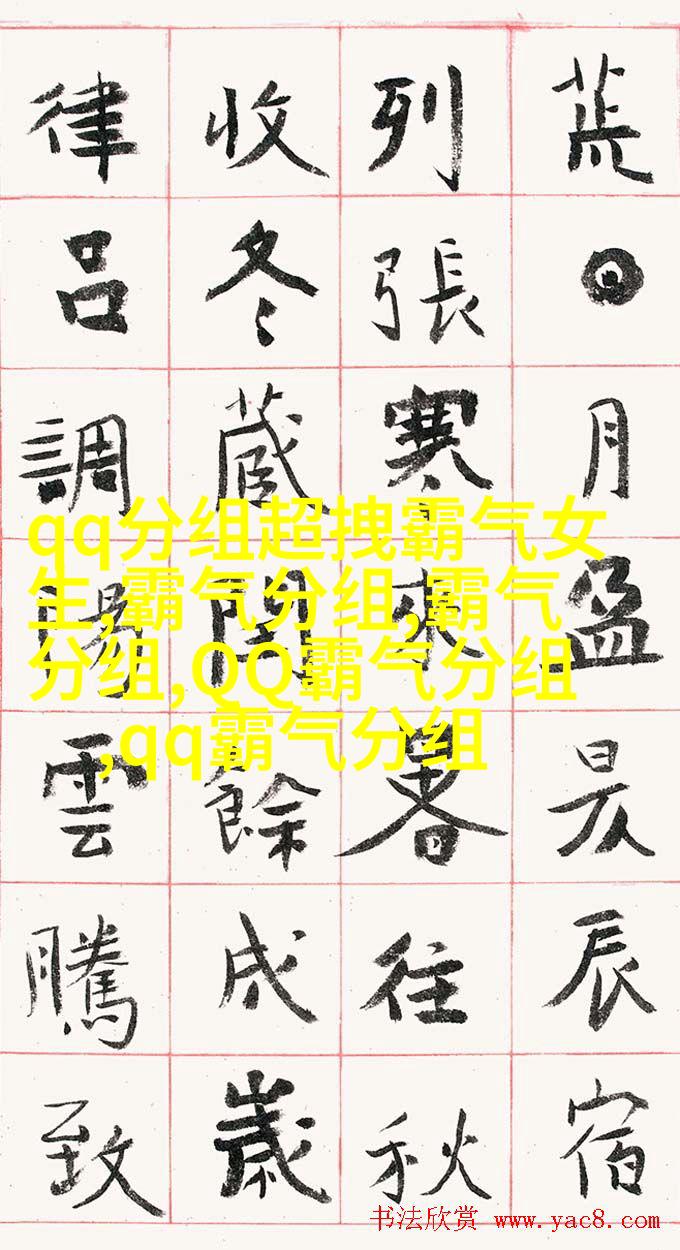 荒日月盈昃辰宿
列張寒來暑往秋
收冬藏閏餘成歲
律呂調陽雲騰致
qq分组超拽霸气女
生,霸气分组,霸气
分组,QQ霸气分组
,qq霸气分组
书法欣赏 www.yac8.com